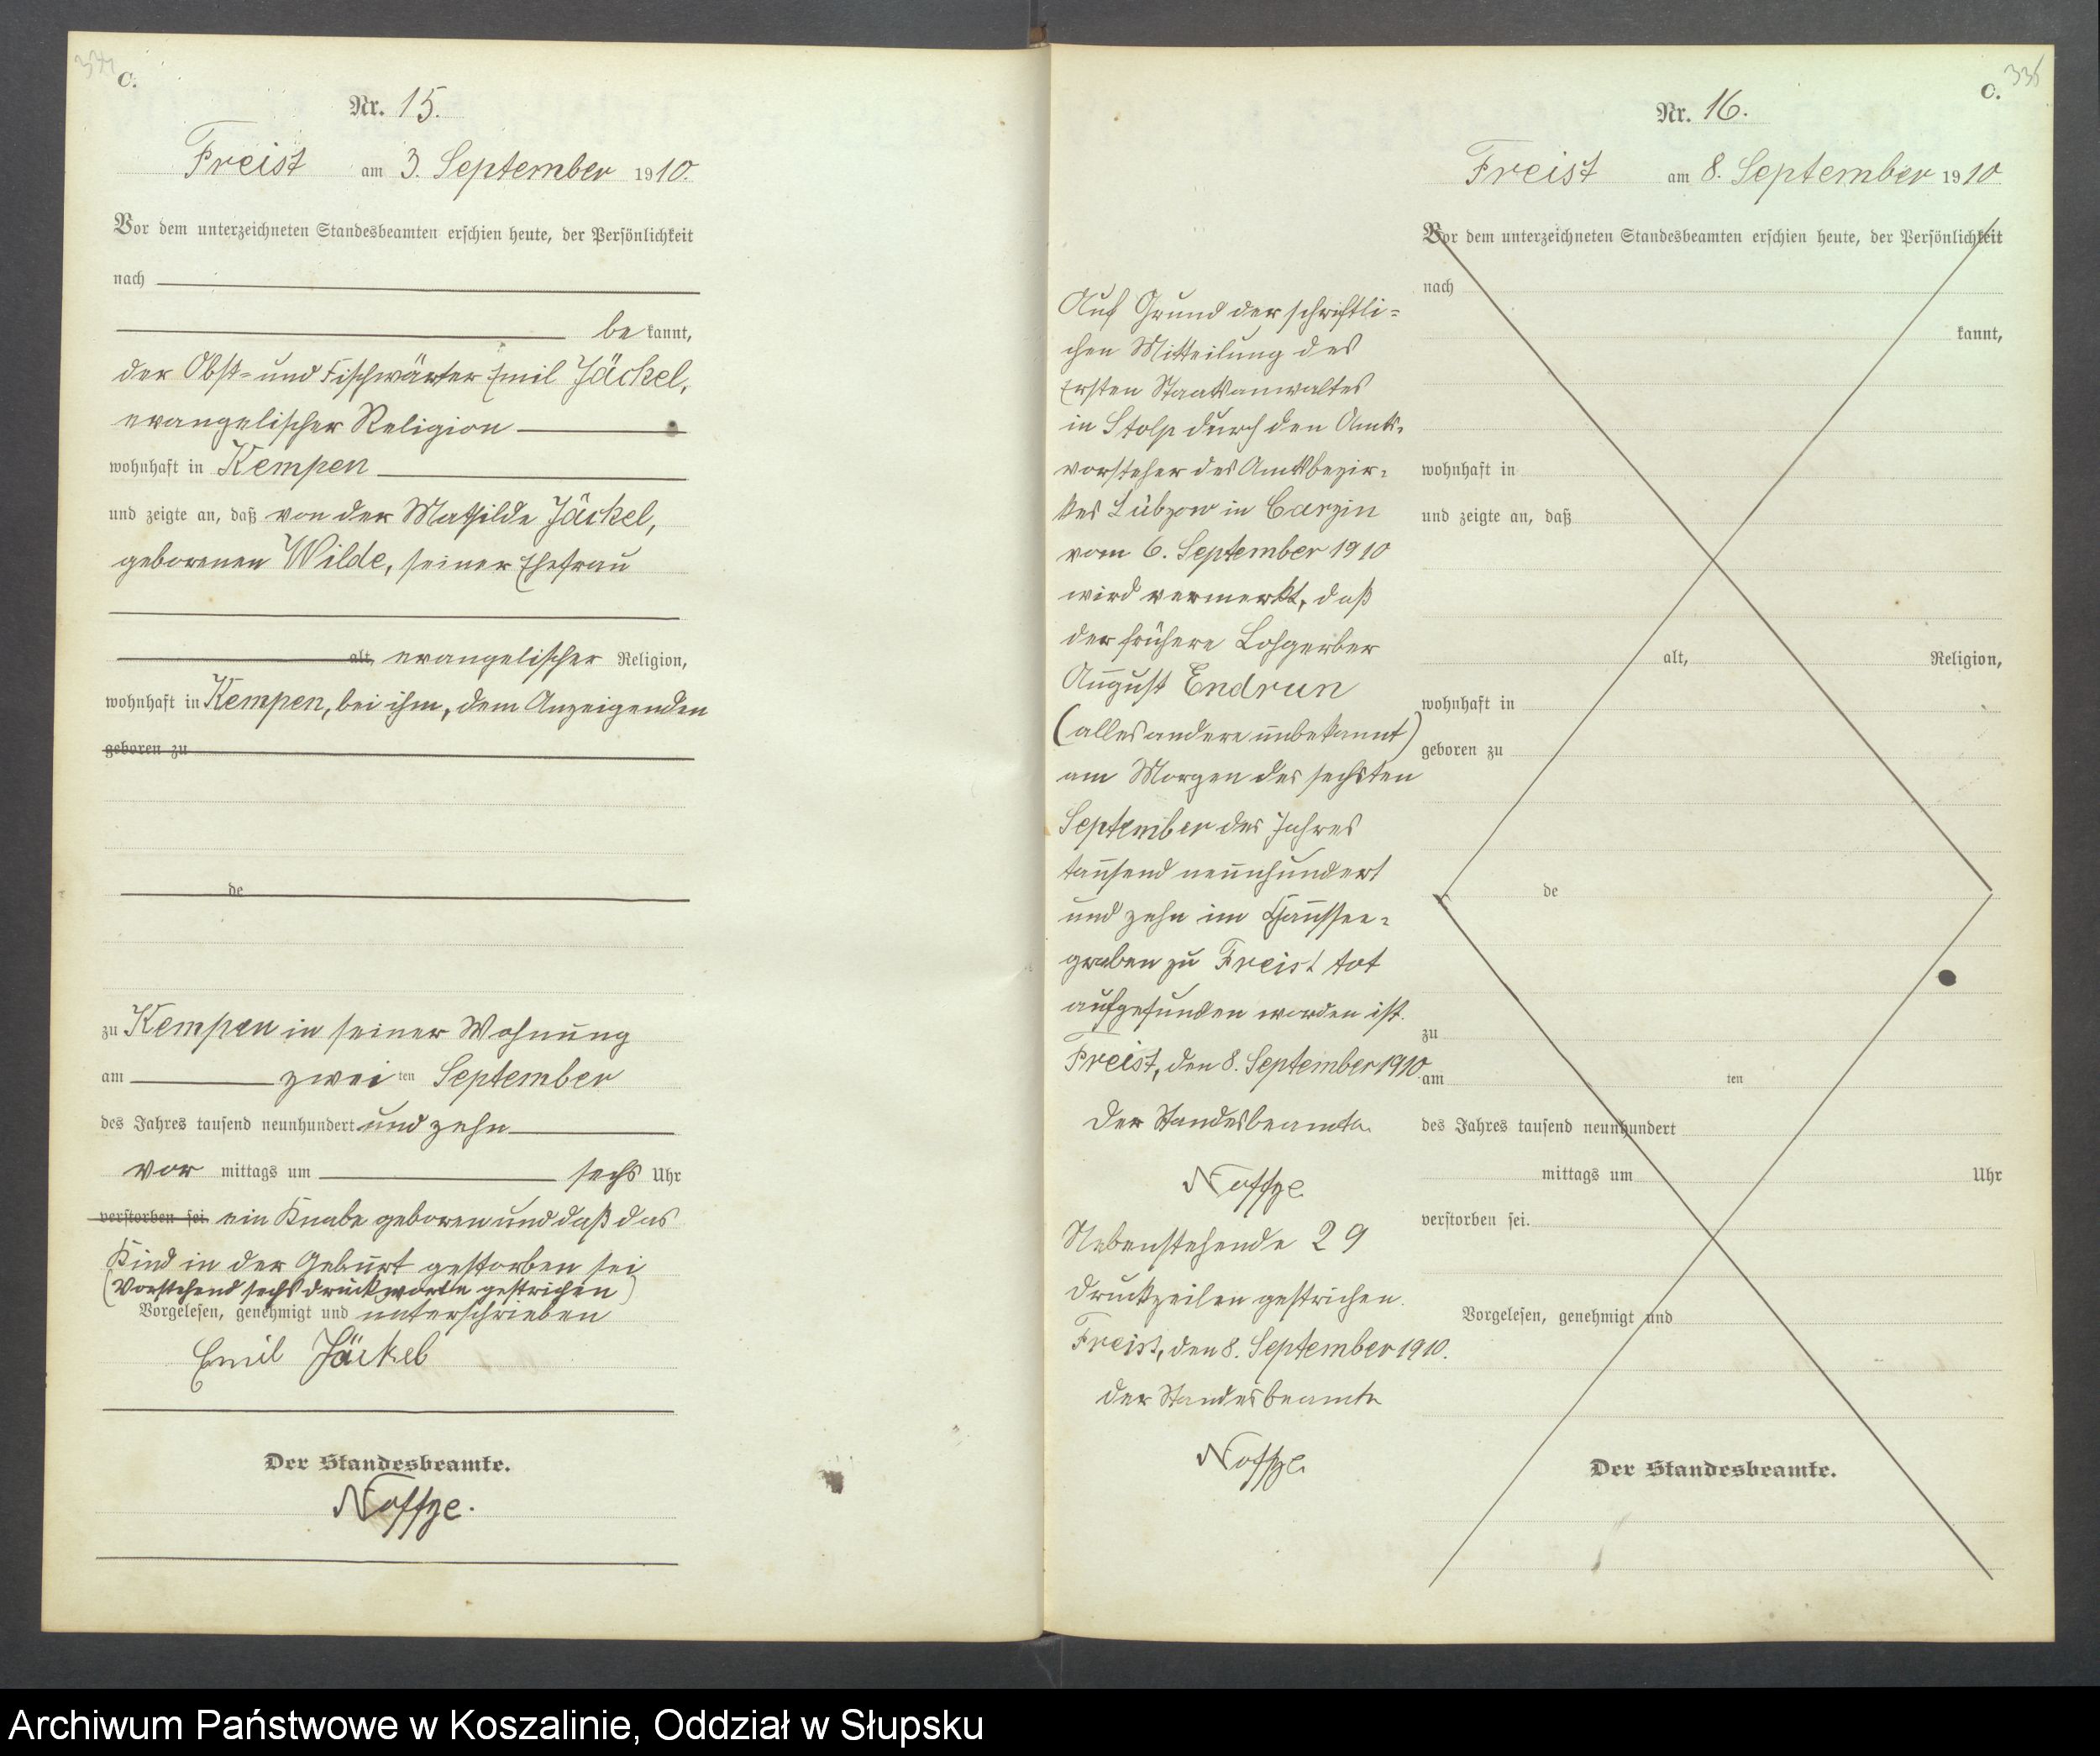 C.
Nr. 15.
Freist am 3. September 1910.
Vor dem unterzeichneten Standesbeamten erschien heute, der Persönlichkeit
nach
be kannt,
der Obst- und Fischwärter Emil Jäckel,
evangelischer Religion
wohnhaft in Kempen
und zeigte an, daß von der Mathilde Jäckel,
geborenen Wilde, seiner Ehefrau
alt, evangelischer Religion,
wohnhaft in Kempen, bei ihm, dem Anzeigenden
geboren zu
de
zu Kempen in seiner Wohnung
am zwei ten September
des Jahres tausend neunhundert und zehn
vor mittags um sechs Uhr
verstorben sei ein Knabe geboren und daß das
Kind in der Geburt gestorben sei
(Vorstehend sechs Druckworte gestrichen)
Vorgelesen, genehmigt und unterschrieben
Emil Jäckel
Der Standesbeamte.
Noffze.
335
C.
Nr. 16.
Freist am 8. September 1910
Auf Grund der schriftli=
chen Mitteilung des
Ersten Staatsanwaltes
in Stolp durch den Amts=
vorsteher des Amtsbezir=
kes Lübzow in Carzin
vom 6. September 1910
wird vermerkt, daß
der frühere Lohgerber
August Endrun
(alles andere unbekannt)
am Morgen des sechsten
September des Jahres
tausend neunhundert
und zehn im Chaussee=
graben zu Freist tot
aufgefunden worden ist.
Freist, den 8. September 1910
Der Standesbeamte.
Noffze
Nebenstehende 29
Druckzeilen gestrichen.
Freist, den 8. September 1910.
Der Standesbeamte
Noffze.
Vor dem unterzeichneten Standesbeamten erschien heute, der Persönlichkeit
nach
kannt,
wohnhaft in
und zeigte an, daß
alt, Religion,
wohnhaft in
geboren zu
de
zu
am ten
des Jahres tausend neunhundert
mittags um Uhr
verstorben sei.
Vorgelesen, genehmigt und
Der Standesbeamte.
Archiwum Państwowe w Koszalinie, Oddział w Słupsku